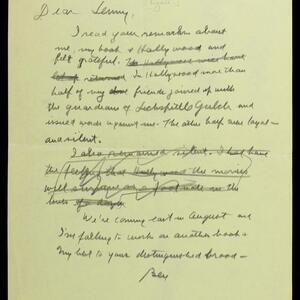 Dear Lenny,
I read your remarks about
me, my book & Hollywood and
felt grateful. The Hollywood
returned In Hollywood more than
half of my friends joined up with
the guardians of Lockspittle Gulch and
issued words against me. The other half were loyal –
and silent.
I also remained silent. I had have
the feeling that Hollywood the movies
will survive as a footnote on the
We're coming east in August and
I'm falling to work on another book.
My best to your distinguished brood –
Ben